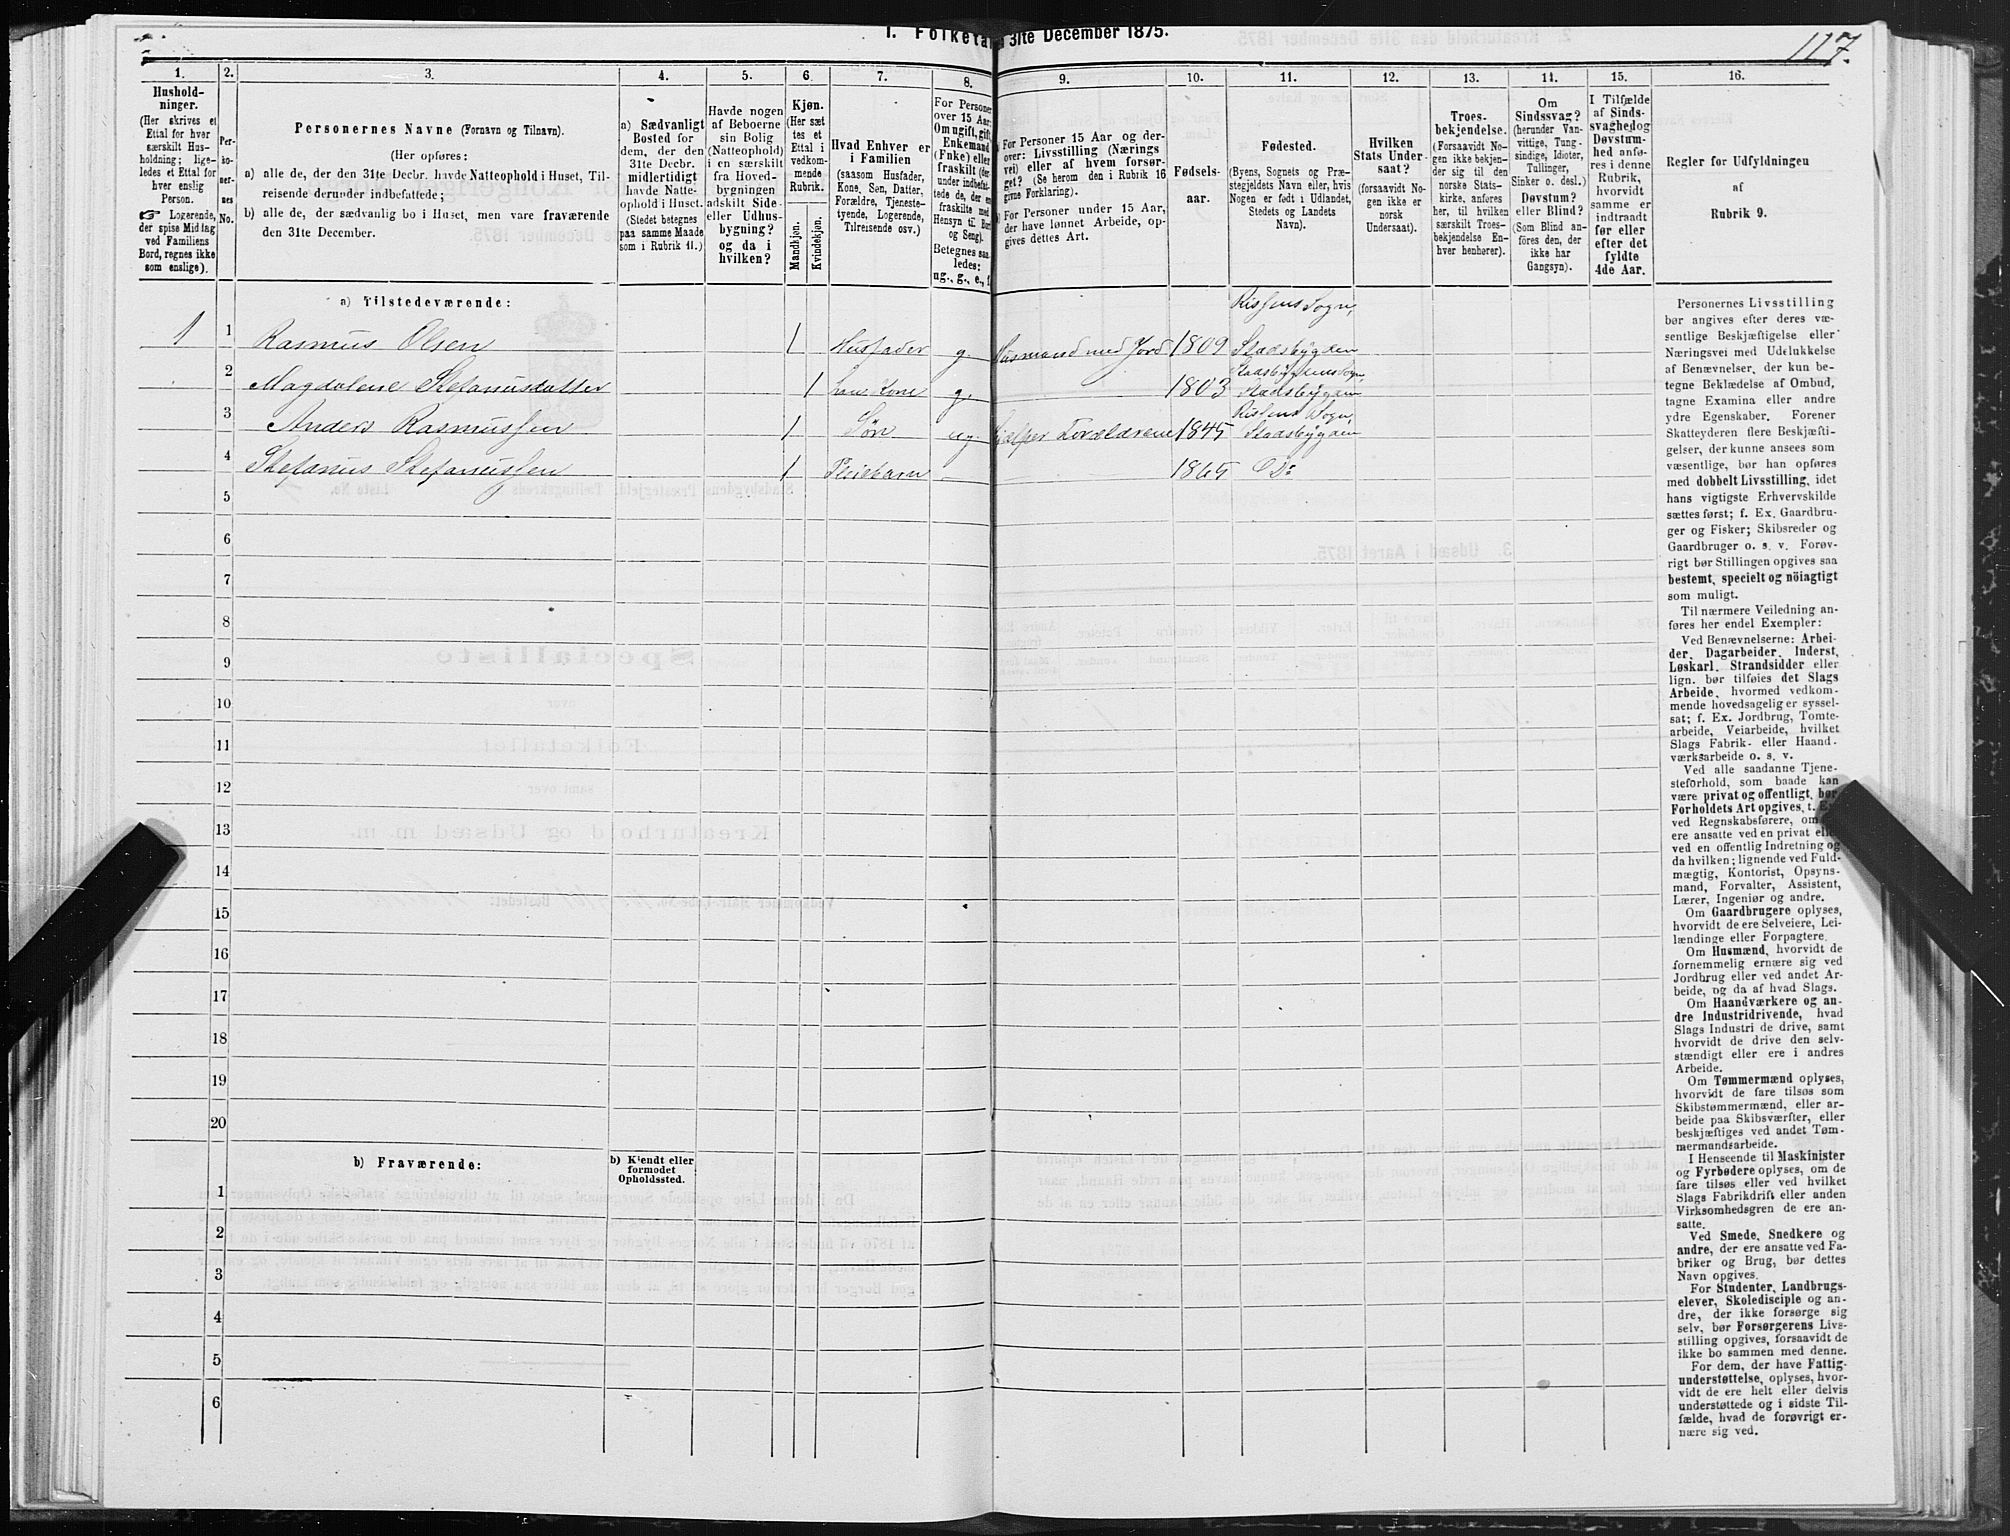 117.
1. Folketal 31te December 1875.
1. 2. 3. 4. 5. 6. 7. 8. 9. 10. 11. 12. 13. 14. 15. 16.
Hushold-
ninger.
(Her skrives et
Ettal for hver
særskilt Hus-
holdning; lige-
ledes et Ettal for
hver enslig
Person.
☞ Logerende,
der spise Middag
ved Familiens
Bord, regnes ikke
som enslige).
Per-
so-
ner-
nes
No.
Personernes Navne (Fornavn og Tilnavn).
(Her opføres:
a) alle de, der den 31te Decbr. havde Natteophold i Huset, Til-
reisende derunder indbefattede;
b) alle de, der sædvanlig bo i Huset, men vare fraværende
den 31te December.
a) Sædvanligt
Bosted for
dem, der den
31te Decbr.
midlertidigt
havde Natte-
ophold i Huset.
(Stedet betegnes
paa samme Maade
som i Rubrik 11.)
Havde nogen
af Beboerne
sin Bolig
(Natteophold)
i en særskilt
fra Hoved-
bygningen
adskilt Side-
eller Udhus-
bygning?
og da i
hvilken?
Kjøn.
(Her sæt
tes et
Ettal i
vedkom-
mende
Rubrik.
Mandkjøn.
Kvindekjøn.
Hvad Enhver er
i Familien
(saasom Husfader,
Kone, Søn, Datter,
Forældre, Tjeneste-
tyende, Logerende,
Tilreisende osv.)
For Personer
over 15 Aar:
Om ugift, gift,
Enkemand
(Enke) eller
fraskilt (der-
under indbefat-
tede de, der ere
fraskilte med
Hensyn til Bord
og Seng).
Betegnes saa-
ledes:
ug., g., e., f.
a) For Personer 15 Aar og der-
over: Livsstilling (Nærings
vei) eller af hvem forsør-
get? (Se herom den i Rubrik 16
givne Forklaring).
b) For Personer under 15 Aar,
der have lønnet Arbeide, op-
gives dettes Art.
Fødsels-
aar.
Fødested.
(Byens, Sognets og Præ-
stegjeldets Navn eller, hvis
Nogen er født i Udlandet,
Stedets og Landets
Navn).
Hvilken
Stats Under-
saat?
(forsaavidt No-
gen ikke er
norsk
Undersaat).
Troes-
bekjendelse.
(Forsaavidt No-
gen ikke bekjen-
der sig til den
norske Stats-
kirke, anføres
her, til hvilken
særskilt Troes-
bekjendelse En-
hver henhører).
Om
Sindssvag?
(herunder Van-
vittige, Tung-
sindige, Idioter,
Tullinger,
Sinker o. desl.)
Døvstum?
eller Blind?
(Som Blind an-
føres den, der
ikke har
Gangsyn).
I Tilfælde
af Sinds-
svaghed og
Døvstum-
hed anfø-
res i denne
Rubrik,
hvorvidt
samme er
indtraadt
før eller
efter det
fyldte
4de Aar.
Regler for Udfyldningen
af
Rubrik 9.
a) Tilstedeværende:
Rissens Sogn,
1 1 Rasmus Olsen 1 Husfader g. Husmand med Jord 1809 Stadsbygden
Stadsbygdens Sogn,
2 Magdalene Stefanusdatter 1 hans Kone g. 1803 Stadsbygden
Rissens Sogn
3 Anders Rasmussen 1 Søn ug. Hjælper Forældrene 1845 Stadsbygden
4 Stefanus Stefanussen 1 Pleiebarn 1865 Do
5
6
7
8
9
10
11
12
13
14
15
16
17
18
19
20
b) Fraværende:
b) Kjendt eller
formodet
Opholdssted.
1
2
3
4
5
6
Personernes Livsstilling
bør angives efter deres væ-
sentlige Beskjæftigelse eller
Næringsvei med Udelukkelse
af Benævnelser, der kun be-
tegne Beklædelse af Ombud,
tagne Examina eller andre
ydre Egenskaber. Forener
Skatteyderen flere Beskjæfti-
gelser, der kunne ansees som
væsentlige, bør han opføres
med dobbelt Livsstilling, idet
hans vigtigste Erhvervskilde
sættes først; f. Ex. Gaardbru-
ger og Fisker; Skibsreder og
Gaardbruger o. s. v. Forøv-
rigt bør Stillingen opgives saa
bestemt, specielt og nöiagtigt
som muligt.
Til nærmere Veiledning an-
føres her endel Exempler:
Ved Benævnelserne: Arbei-
der, Dagarbeider, Inderst,
Løskarl, Strandsidder eller
lign. bør tilføies det Slags
Arbeide, hvormed vedkom-
mende hovedsagelig er syssel-
sat; f. Ex. Jordbrug, Tomte-
arbeide, Veiarbeide, hvilket
Slags Fabrik- eller Haand-
værksarbeide o. s. v.
Ved alle saadanne Tjene-
steforhold, som baade kan
være privat og offentligt, bør
Forholdets Art opgives, t. Ex.
ved Regnskabsførere, om
ere ansatte ved en privat eller
ved en offentlig Indretning og
da hvilken; lignende ved Fuld-
mægtig, Kontorist, Opsyns-
mand, Forvalter, Assistent,
Lærer, Ingeniør og andre.
Om Gaardbrugere oplyses,
hvorvidt de ere Selveiere, Lei-
lændinge eller Forpagtere.
Om Husmænd, hvorvidt de
fornemmelig ernære sig ved
Jordbrug eller ved andet Ar-
beide, og da af hvad Slags.
Om Haandværkere og an-
dre Industridrivende, hvad
Slags Industri de drive, samt
hvorvidt de drive den selv-
stændigt eller ere i andres
Arbeide.
Om Tømmermænd oplyses,
hvorvidt de fare tilsøs som
Skibstømmermænd, eller ar-
beide paa Skibsværfter, eller
beskjæftiges ved andet Tøm-
mermandsarbeide.
I Henseende til Maskinister
og Fyrbødere oplyses, om de
fare tilsøs eller ved hvilket
Slags Fabrikdrift eller anden
Virksomhedsgren de ere an-
satte.
Ved Smede, Snedkere og
andre, der ere ansatte ved Fa-
briker og Brug, bør dettes
Navn opgives.
For Studenter, Landbrugs-
elever, Skoledisciple og an-
dre, der ikke forsørge sig
selv, bør Forsørgerens Livs-
stilling opgives, forsaavidt de
ikke bo sammen med denne.
For dem, der have Fattig-
understøttelse, oplyses, hvor-
vidt de ere helt eller delvis
understøttede og i sidste Til-
fælde, hvad de forøvrigt er-
nære sig ved.